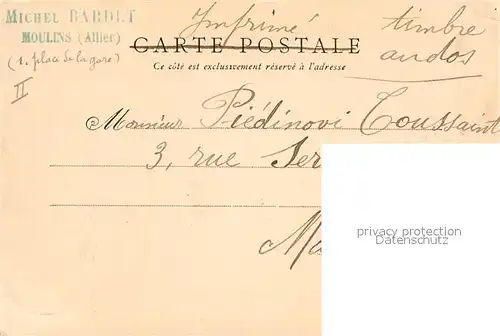 MICHEL BARDET
MOULINS (Allier)
(1. place de la gare)
II
Imprimé
timbre
au dos
CARTE POSTALE
Ce côté est exclusivement réservé à l'adresse
Monsieur Piédinovi Toussaint
3, rue Ser
Ma
privacy protection
Datenschutz